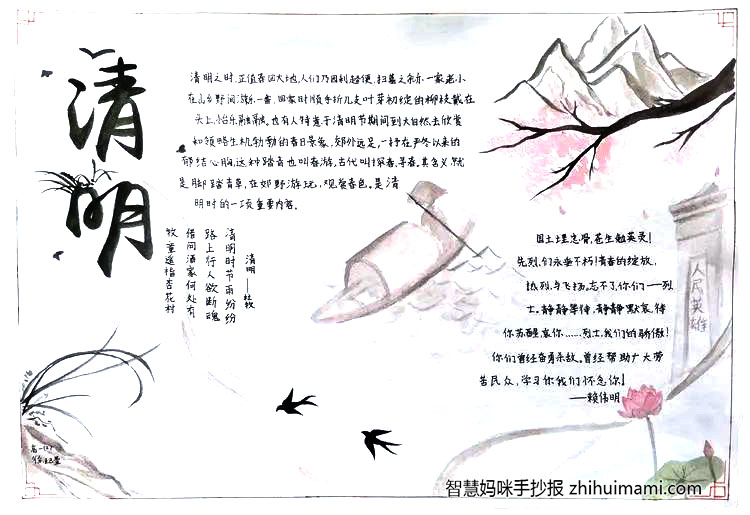 清明
清明之时,正值春回大地,人们乃因利趁便,扫墓之余亦一家老小
在山乡野间游乐一番,回家时顺手折几支叶芽初绽的柳枝戴在
头上,怡乐融融。也有人特意于清明节期间到大自然去欣赏
和领略生机勃勃的春日景象,郊外远足,一抒在严冬以来的
郁结心胸,这种踏青也叫春游,古代叫探春、寻春。其含义就
是脚踏青草,在郊野游玩,观赏春色。是清
明时的一项重要内容。
清明——杜牧
清明时节雨纷纷
路上行人欲断魂
借问酒家何处有
牧童遥指杏花村
国土埋忠骨,苍生勉英灵!
先烈,们永垂不朽!青春的绽放,
热烈,与飞扬,忘不了,你们——烈
士。静静等待,静静默哀,待
你苏醒,哀你……烈士,我们的骄傲!
你们曾经奋勇杀敌。曾经帮助广大劳
苦民众,学习你我们怀念你!
——赖伟明
人民英雄
智慧妈咪手抄报 zhihuimami.com